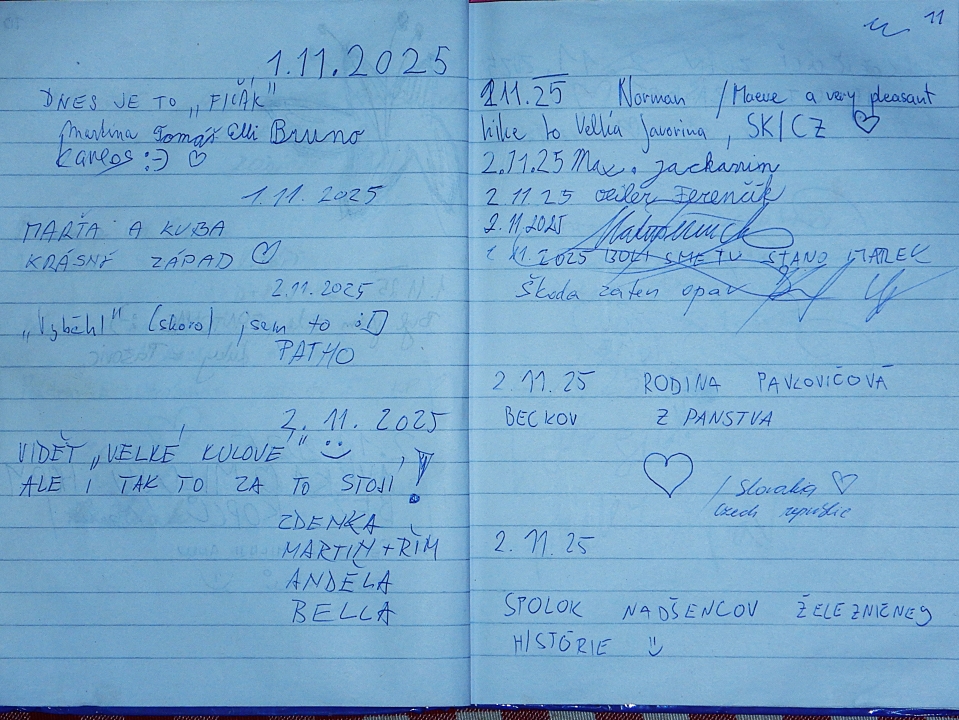 1.11.2025
DNES JE TO „FIČÁK"
Martina Tomáš Elli Bruno
Karlos :-) ♡
1.11.2025
MARŤA A KUBA
KRÁSNÝ ZÁPAD ♡
2.11.2025
„Vyběhl" (skoro) jsem to :D
PATHO
2.11.2025
VIDĚT „VELKÉ KULOVÉ"
ALE I TAK TO ZA TO STOJÍ!
ZDENKA
MARTIN + ŘÍM
ANDĚLA
BELLA
11
2.11.25 Norman / Maeve a very pleasant
hike to Velká Javorina, SK/CZ ♡
2.11.25 Max.
2.11.25 Ferenčík
2.11.2025
2.11.2025 BOLI SME TU STANO MAREK
Škoda zaten opav
2.11.25 RODINA PAVLOVIČOVÁ
BECKOV Z PANSTVA
/ Slovakia ♡
Czech republic
2.11.25
SPOLOK NADŠENCOV ŽELEZNIČNEJ
HISTÓRIE